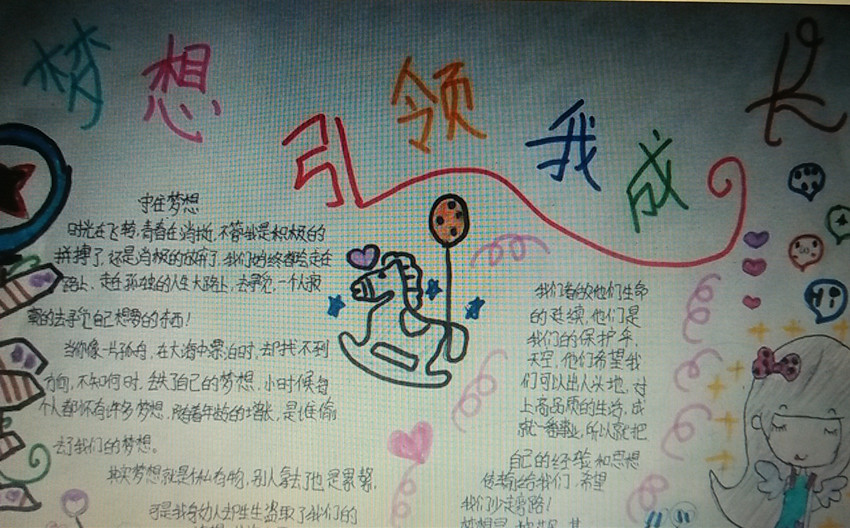 梦想引领我成长
守住梦想
时光在飞转,青春在消逝,不管我是积极的
拼搏了,还是消极的放弃了,我们始终都会走在
路上,走在孤独的人生大路上,去寻觅,一个人寂
寞的去寻觅自己想要的东西!
当你像一片孤舟,在大海中漂泊时,却找不到
方向,不知何时,丢失了自己的梦想,小时候每
个人都怀有许多梦想,随着年龄的增长,是谁偷
去了我们的梦想。
其实梦想就是件私有物,别人拿去他是累赘,
可是我身边人却生生盗取了我们的
我们看做他们生命
的延续,他们是
我们的保护伞,
天空,他们希望我
们可以出人头地,对
上高品质的生活,成
就一番事业,所以就把
自己的经验和思想
传输给我们,希望
我们少走弯路!
Hi